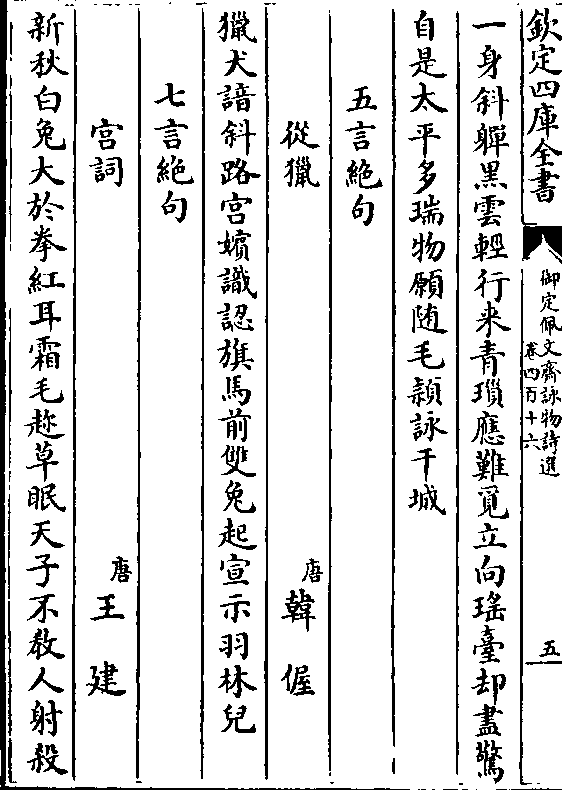 欽定四庫全書
御定佩文齋詠物詩選
卷四百十六
五
一身斜軃黑雲輕行来青瑣應難覓立向瑤臺却盡驚
自是太平多瑞物願随毛頴詠干城
五言絶句
從獵
唐韓偓
獵犬諳斜路宫嬪識認旗馬前雙兔起宣示羽林兒
七言絶句
宫詞
唐王建
新秋白兔大於拳紅耳霜毛趂草眠天子不教人射殺